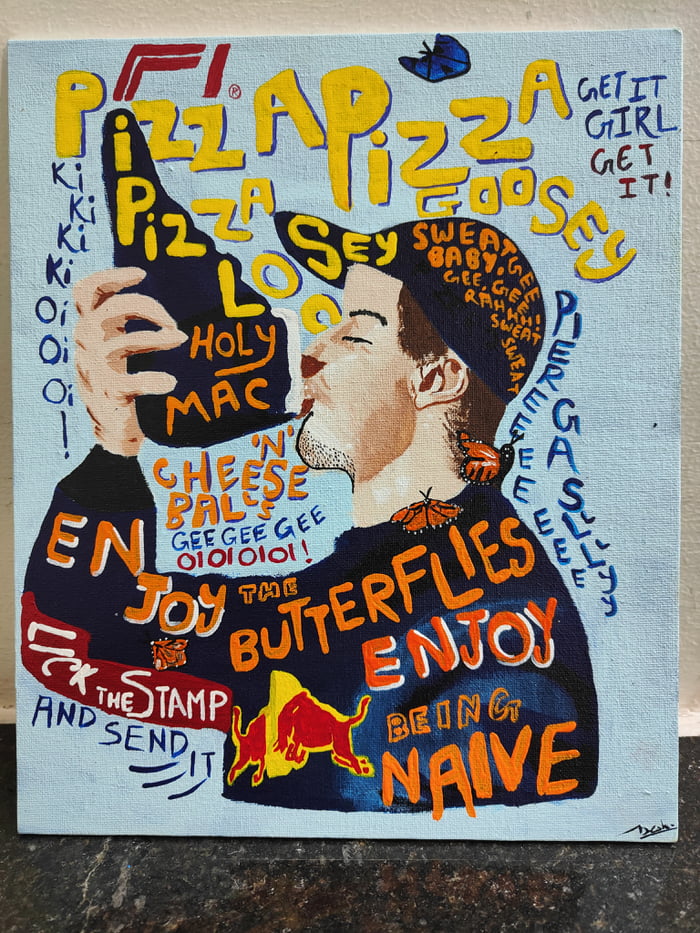 F1®
PizzA PizzA
GET IT
GIRL
GET
IT!
PizzA
GOOSEY
LOOSEY
Ki
Ki
Ki
Ki
Oi
Oi
Oi
!
SWEAT GEE
BABY,
GEE, GEE!
RAHHH!
SWEAT
SWEAT
HOLY
MAC
'N'
CHEESE
BALL'S
GEE GEE GEE
OIOIOIOI!
ENJOY
THE
BUTTERFLIES
ENJOY
BEING
NAIVE
THE STAMP
AND SEND
IT